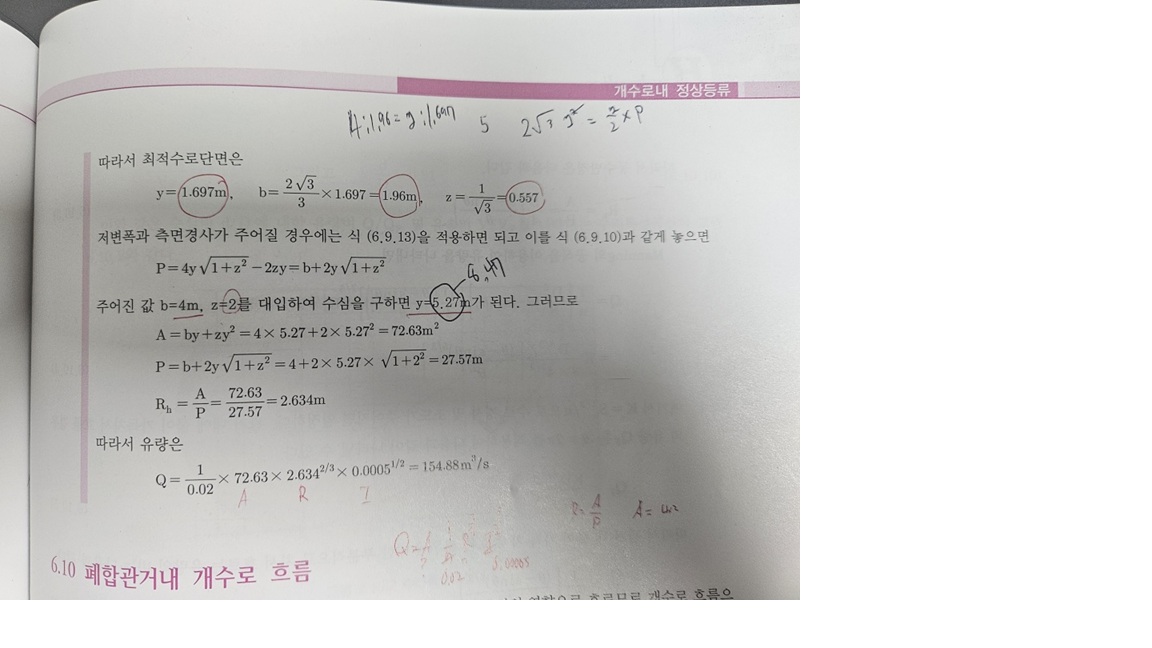 개수로내 정상등류
4:1.96=y:1.697 5 2√3 y² = y/2 × P
따라서 최적수로단면은
y=1.697m, b=2√3/3×1.697=1.96m, z=1/√3=0.557
저변폭과 측면경사가 주어질 경우에는 식 (6.9.13)을 적용하면 되고 이를 식 (6.9.10)과 같게 놓으면
P=4y√1+z²−2zy=b+2y√1+z²
주어진 값 b=4m, z=2를 대입하여 수심을 구하면 y=5.27m가 된다. 그러므로
A=by+zy²=4×5.27+2×5.27²=72.63m²
P=b+2y√1+z²=4+2×5.27×√1+2²=27.57m
Rh=A/P=72.63/27.57=2.634m
따라서 유량은
Q=1/0.02×72.63×2.634^2/3×0.0005^1/2=154.88m³/s
A R I
R=A/P A=
Q=A
0.02 0.00005
6.10 폐합관거내 개수로 흐름
흐르므로 개수로 흐름은